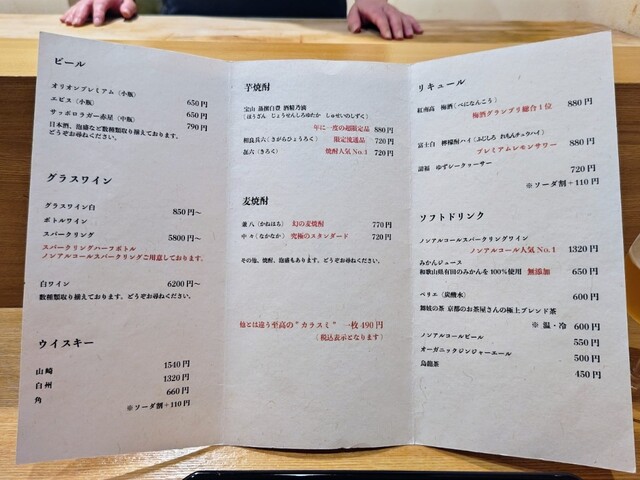 ビール
オリオンプレミアム（小瓶） 650円
エビス（小瓶） 650円
サッポロラガー赤星（中瓶） 790円
日本酒、泡盛など数種類取り揃えております。
どうぞお尋ねください。
グラスワイン
グラスワイン白 850円～
ボトルワイン
スパークリング 5800円～
スパークリングハーフボトル
ノンアルコールスパークリングご用意しております。
白ワイン 6200円～
数種類取り揃えております、どうぞお尋ねください。
ウイスキー
山崎 1540円
白州 1320円
角 660円
※ソーダ割+110円
芋焼酎
宝山 蒸撰白豊 酒精乃滴
（ほうざん じょうせんしろゆたか しゅせいのしずく）
年に一度の超限定品 880円
相良兵六（さがらひょうろく） 限定流通品 720円
㐂六（きろく） 焼酎人気No.1 720円
麦焼酎
兼八（かねはち） 幻の麦焼酎 770円
中々（なかなか） 究極のスタンダード 720円
その他、焼酎、泡盛もあります。どうぞお尋ねください。
他とは違う至高の"カラスミ" 一枚490円
（税込表示となります）
リキュール
紅南高 梅酒（べになんこう） 880円
梅酒グランプリ総合1位
富士白 檸檬酎ハイ（ふじしろ れもんチュウハイ） 880円
プレミアムレモンサワー
請福 ゆずシークヮーサー 720円
※ソーダ割+110円
ソフトドリンク
ノンアルコールスパークリングワイン
ノンアルコール人気No.1 1320円
みかんジュース
和歌山県有田のみかんを100%使用 無添加 650円
ペリエ（炭酸水） 600円
舞城の茶 京都のお茶屋さんの極上ブレンド茶
※ 温・冷 600円
ノンアルコールビール 550円
オーガニックジンジャーエール 500円
烏龍茶 450円